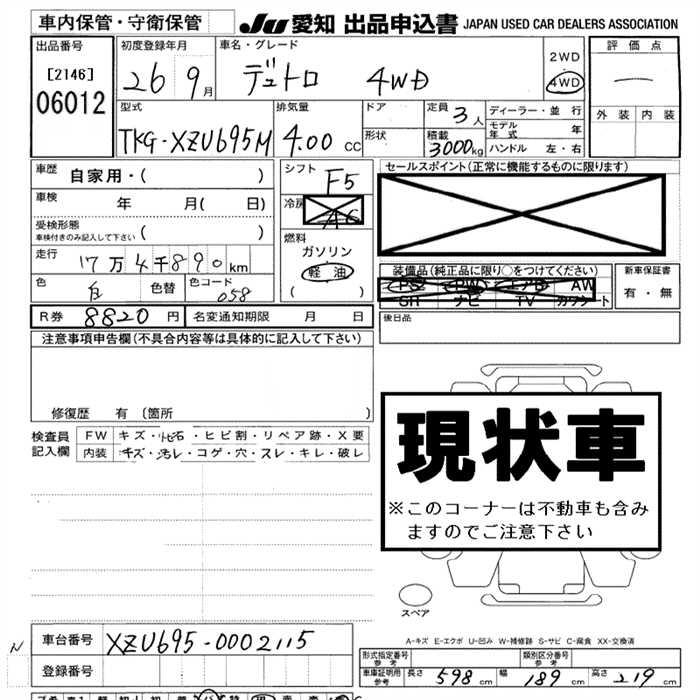 車内保管・守衛保管
JU 愛知 出品申込書 JAPAN USED CAR DEALERS ASSOCIATION
出品番号 [2146] 06012
初度登録年月 26 9月
車名・グレード デュトロ 4WD
2WD
4WD
評価点
外装 内装
型式 TKG-XZU695M
排気量 4.00 CC
ドア
形状
定員 3人
積載 3000kg
ディーラー・並行
モデル年式 年
ハンドル 左・右
車歴 自家用・( )
車検 年 月( 日)
受検形態
車検付きのみ記入して下さい ( )
走行 17万4千890km
色 白 色替 色コード 058
シフト F5
冷房 AC
燃料
ガソリン
軽油
( )
セールスポイント(正常に機能するものに限ります)
装備品(純正品に限り○をつけてください)
PS PW エアB AW
SR ナビ TV カワシート
新車保証書
有・無
R券 8820円 名変通知期限 月 日
後日品
注意事項申告欄(不具合内容等は具体的に記入して下さい)
修復歴 有 〔箇所 〕
検査員記入欄
FW キズ・飛石・ヒビ割・リペア跡・X要
内装 キズ・汚レ・コゲ・穴・スレ・キレ・破レ
現状車
※このコーナーは不動車も含み
ますのでご注意下さい
スペア
A-キズ E-エクボ U-凹み W-補修跡 S-サビ C-腐食 XX-交換済
N
車台番号 XZU695-0002115
登録番号
形式指定番号 参考
類別区分番号 参考
車庫証明用 参考 長さ 598cm 幅 189cm 高さ 219cm